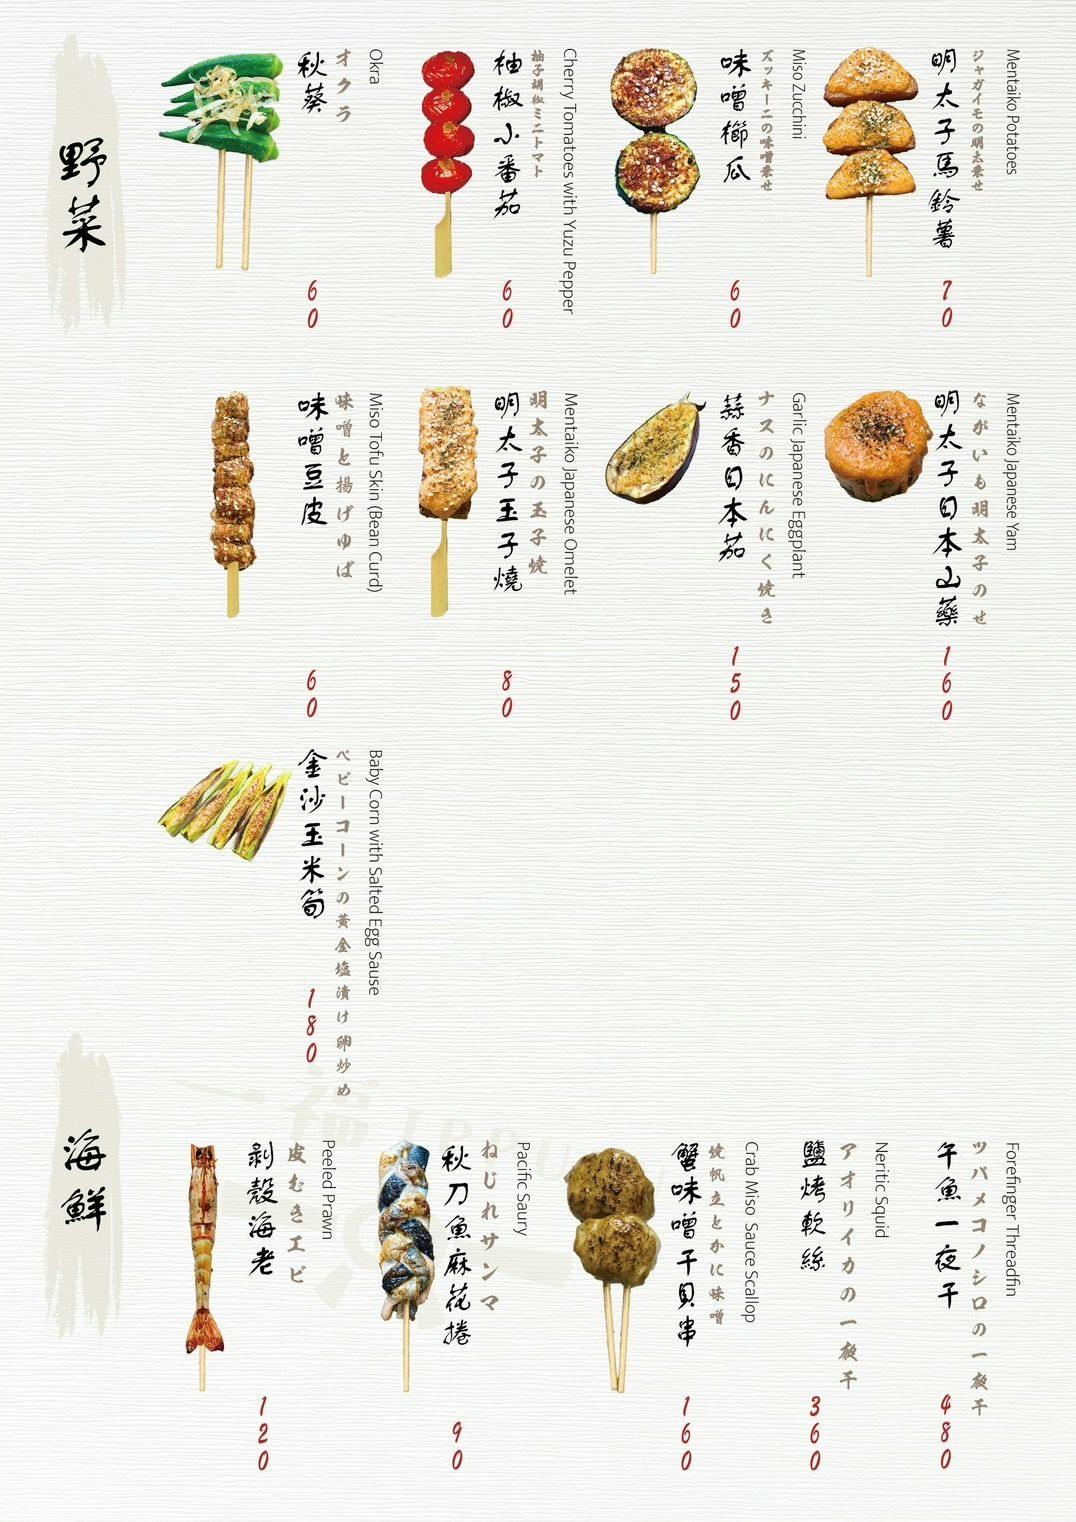 野菜
秋葵
オクラ
Okra
60
柚椒小番茄
柚子胡椒ミニトマト
Cherry Tomatoes with Yuzu Pepper
60
味噌櫛瓜
ズッキーニの味噌乗せ
Miso Zucchini
60
明太子馬鈴薯
ジャガイモの明太乗せ
Mentaiko Potatoes
70
味噌豆皮
味噌と揚げゆば
Miso Tofu Skin (Bean Curd)
60
明太子玉子燒
明太子の玉子焼
Mentaiko Japanese Omelet
80
蒜香日本茄
ナスのにんにく焼き
Garlic Japanese Eggplant
150
明太子日本山藥
ながいも明太子のせ
Mentaiko Japanese Yam
160
金沙玉米筍
ベビーコーンの黄金塩漬け卵炒め
Baby Corn with Salted Egg Sause
180
海鮮
剝殼海老
皮むきエビ
Peeled Prawn
120
秋刀魚麻花捲
ねじれサンマ
Pacific Saury
90
蟹味噌干貝串
焼帆立とかに味噌
Crab Miso Sauce Scallop
160
鹽烤軟絲
アオリイカの一夜干
Neritic Squid
360
午魚一夜干
ツバメコノシロの一夜干
Forefinger Threadfin
480
一福